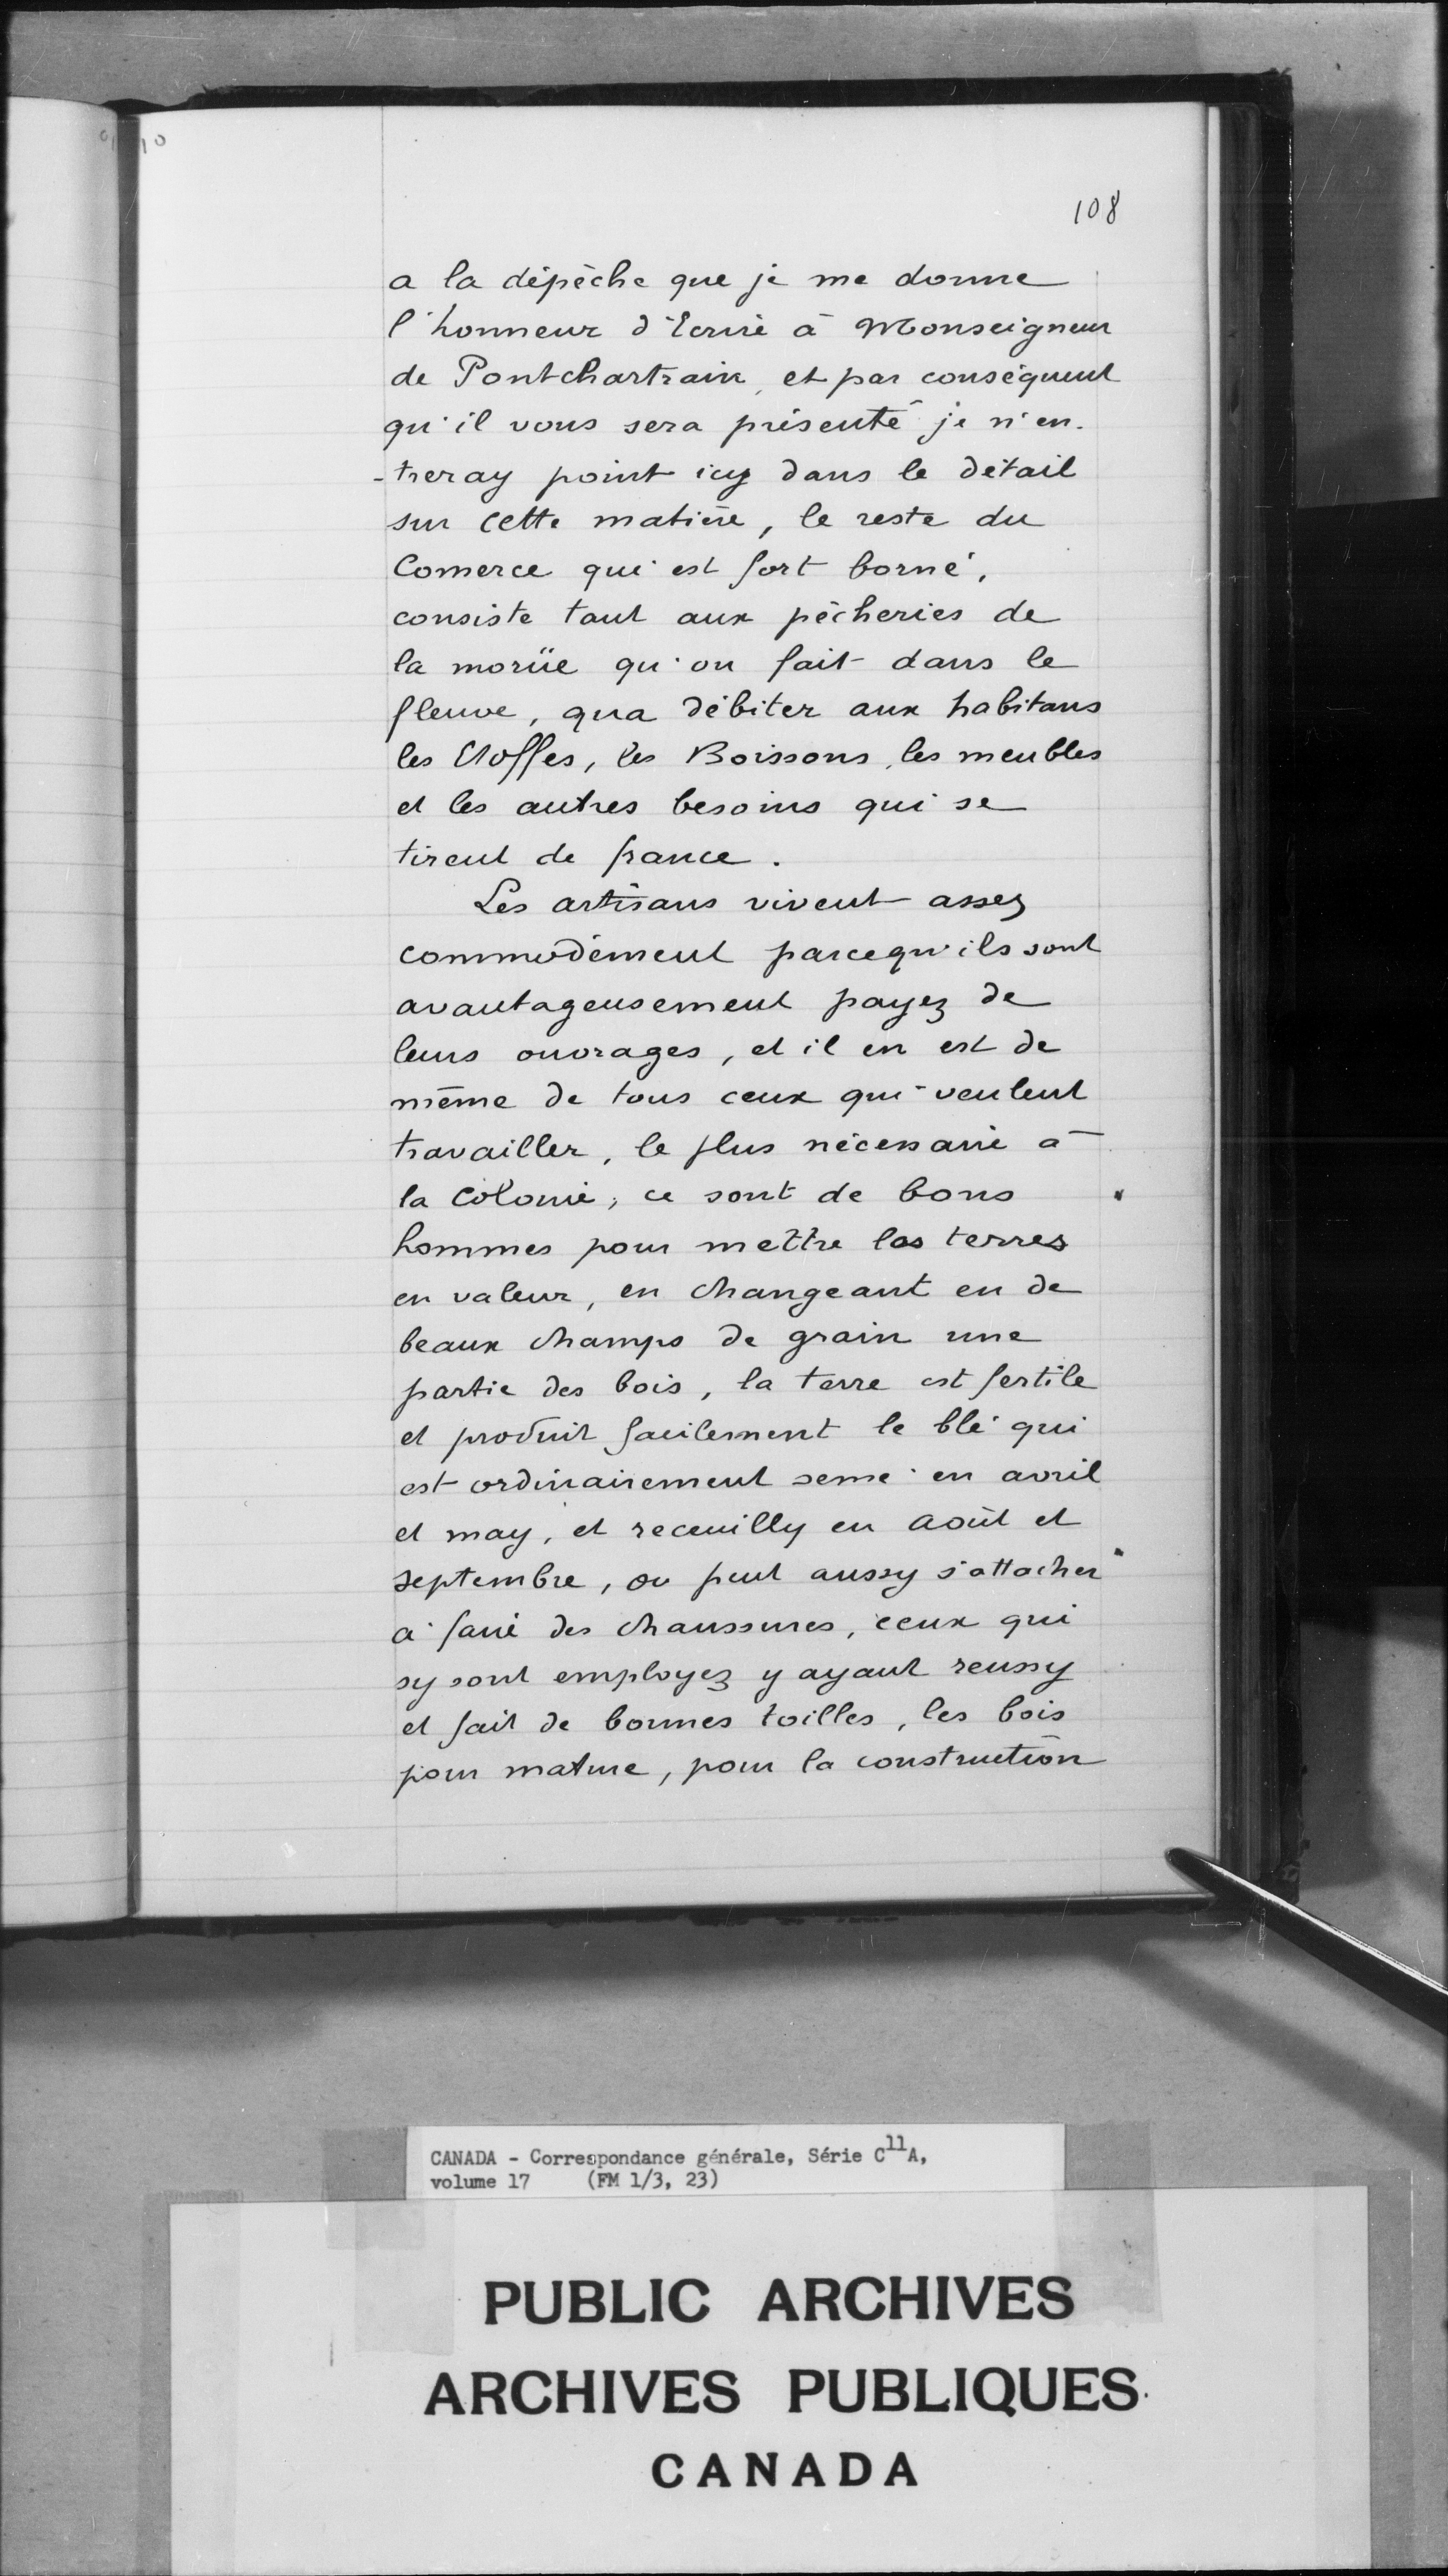 108
a la dépèche que je me donne
l'honneur d'Ecrire à Monseigneur
de Pontchartrain, et par conséquent
qu'il vous sera présenté je n'en-
-treray point icy dans le détail
sur cette matière, le reste du
Comerce qui est fort borné,
consiste tant aux pêcheries de
la morüe qu'on fait dans le
fleuve, qua débiter aux habitans
les Etoffes, les Boissons, les meubles
et les autres besoins qui se
tirent de france.
Les artisans vivent assez
commodément parcequ'ils sont
avantageusement payez de
leurs ouvrages, et il en est de
même de tous ceux qui veulent
travailler, le plus nécessaire à
la Colonie, ce sont de bons
hommes pour mettre les terres
en valeur, en changeant en de
beaux champs de grain une
partie des bois, la terre est fertile
et produit facilement le blé qui
est ordinairement semé en avril
et may, et receuilly en août et
septembre, on peut aussy s'attacher
a faire des chaussures, ceux qui
sy sont employez y ayant reussy
et fait de bonnes toilles, les bois
pour mature, pour la construction
CANADA - Correspondance générale, Série C11A,
volume 17 (FM 1/3, 23)
PUBLIC ARCHIVES
ARCHIVES PUBLIQUES
CANADA